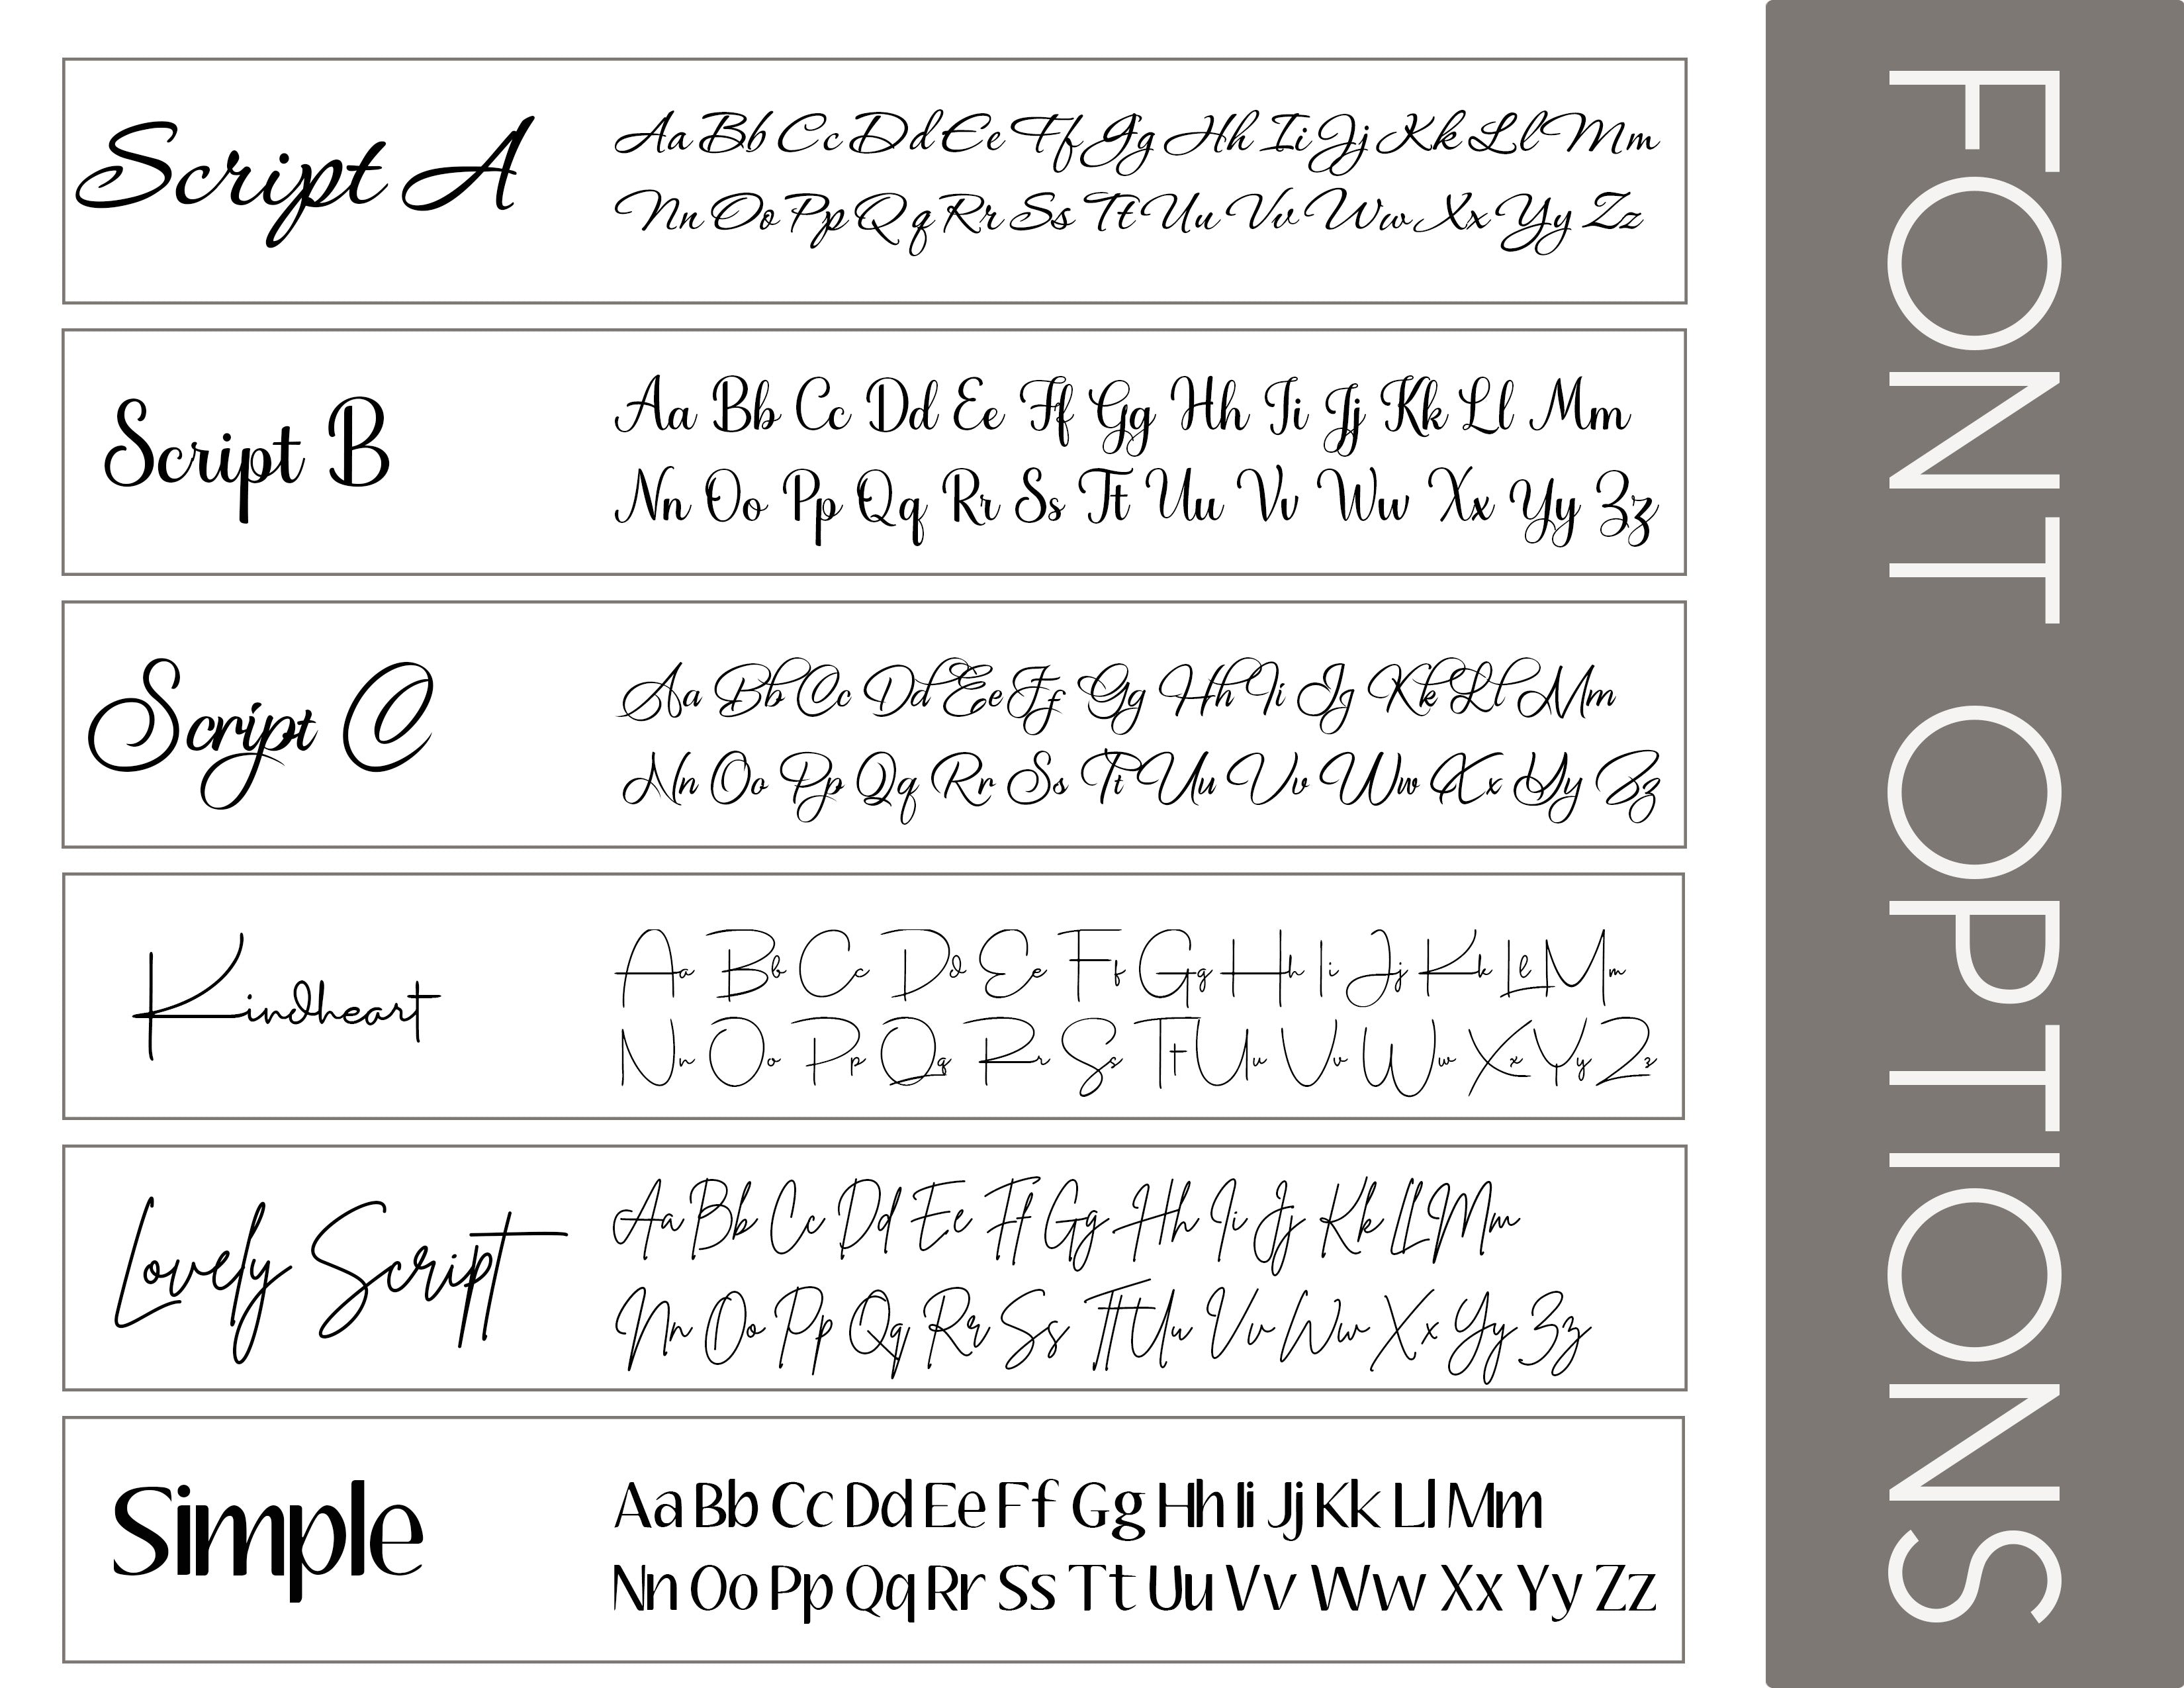 Script A
Aa Bb Cc Dd Ee Ff Gg Hh Ii Jj Kk Ll Mm
Nn Oo Pp Qq Rr Ss Tt Uu Vv Ww Xx Yy Zz
Script B
Aa Bb Cc Dd Ee Ff Gg Hh Ii Jj Kk Ll Mm
Nn Oo Pp Qq Rr Ss Tt Uu Vv Ww Xx Yy Zz
Script C
Aa Bb Cc Dd Ee Ff Gg Hh Ii Jj Kk Ll Mm
Nn Oo Pp Qq Rr Ss Tt Uu Vv Ww Xx Yy Zz
Kindheart
Aa Bb Cc Dd Ee Ff Gg Hh Ii Jj Kk Ll Mm
Nn Oo Pp Qq Rr Ss Tt Uu Vv Ww Xx Yy Zz
Lovely Script
Aa Bb Cc Dd Ee Ff Gg Hh Ii Jj Kk Ll Mm
Nn Oo Pp Qq Rr Ss Tt Uu Vv Ww Xx Yy Zz
Simple
Aa Bb Cc Dd Ee Ff Gg Hh Ii Jj Kk Ll Mm
Nn Oo Pp Qq Rr Ss Tt Uu Vv Ww Xx Yy Zz
FONT OPTIONS